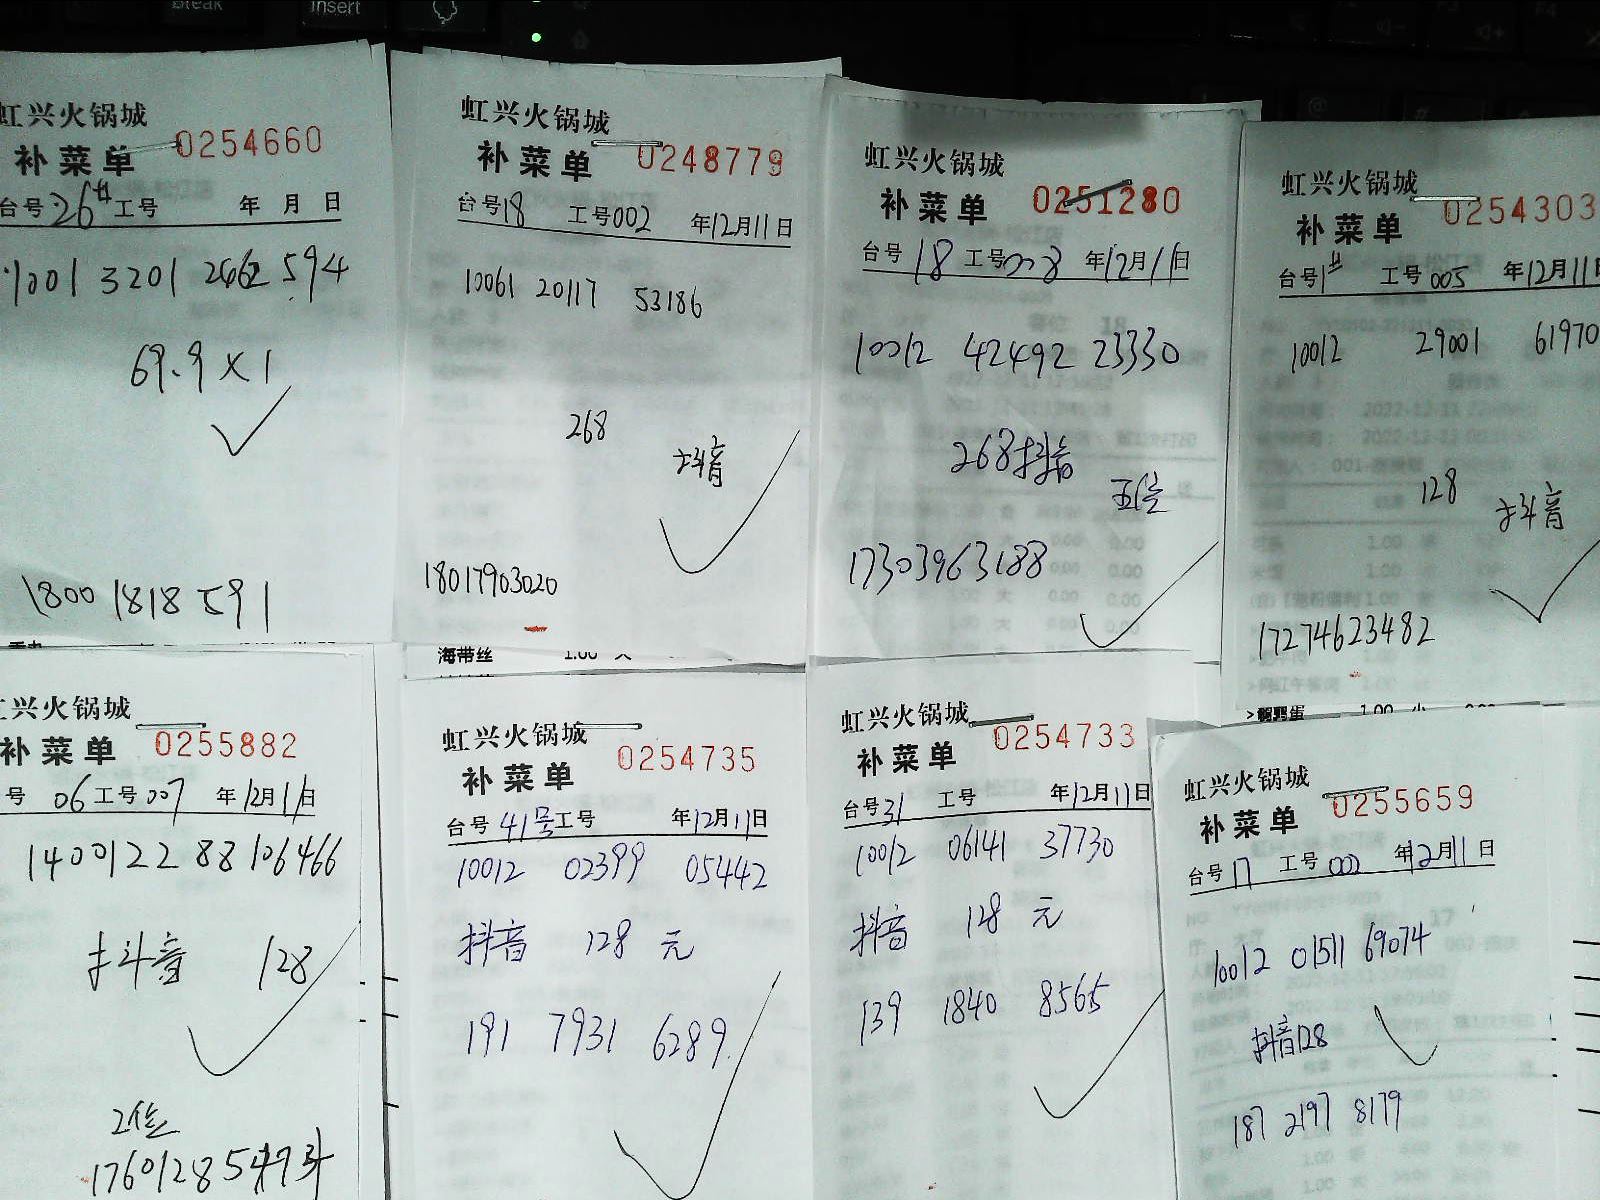 Break
Insert
虹兴火锅城
补菜单 0254660
台号 26# 工号 年 月 日
1001 3201 2662 594
69.9 × 1
1800 1818 591
虹兴火锅城
补菜单 0248779
台号 18 工号 002 年 12月 11日
10061 20117 53186
268
抖音
18017903020
海带丝 1.00 大
虹兴火锅城
补菜单 0251280
台号 18 工号 008 年 12月 11日
10012 42492 23330
268 抖音
五位
17303963188
虹兴火锅城
补菜单 0254303
台号 1# 工号 005 年 12月 11日
10012 29001 61970
128 抖音
17274623482
>鹌鹑蛋 1.00 小 0.00
虹兴火锅城
补菜单 0255882
号 06 工号 007 年 12月 11日
1400122 88 106466
抖音 128
2位
虹兴火锅城
补菜单 0254735
台号 41号 工号 年 12月 11日
10012 02399 05442
抖音 128 元
191 7931 6289
虹兴火锅城
补菜单 0254733
台号 31 工号 年 12月 11日
10012 06141 37730
抖音 128 元
139 1840 8565
虹兴火锅城
补菜单 0255659
台号 17 工号 002 年 12月 11日
10012 01511 69074
抖音128
187 2197 8179